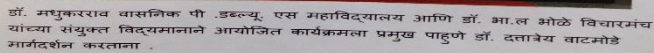 डॉ. मधुकरराव वासनिक पी .डब्ल्यू. एस महाविद्यालय आणि डॉ. भा.ल भोळे विचारमंच
यांच्या संयुक्त विद्यमानाने आयोजित कार्यक्रमला प्रमुख पाहुणे डॉ. दत्तात्रेय वाटमोडे
मार्गदर्शन करताना .